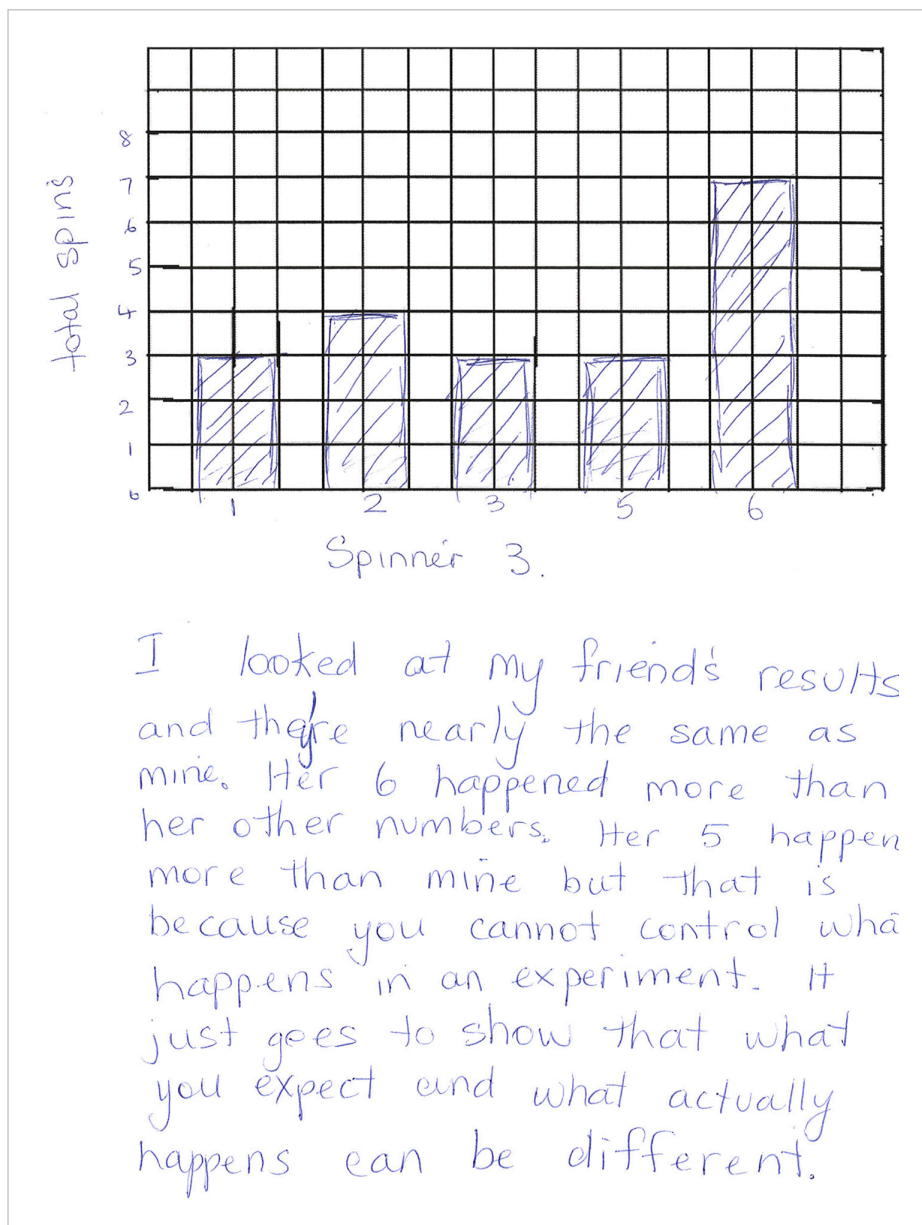 8
7
6
5
4
3
2
1
0
total spins
1 2 3 5 6
Spinner 3.
I looked at my friend's results
and they're nearly the same as
mine. Her 6 happened more than
her other numbers. Her 5 happen
more than mine but that is
because you cannot control wha
happens in an experiment. It
just goes to show that what
you expect and what actually
happens can be different.